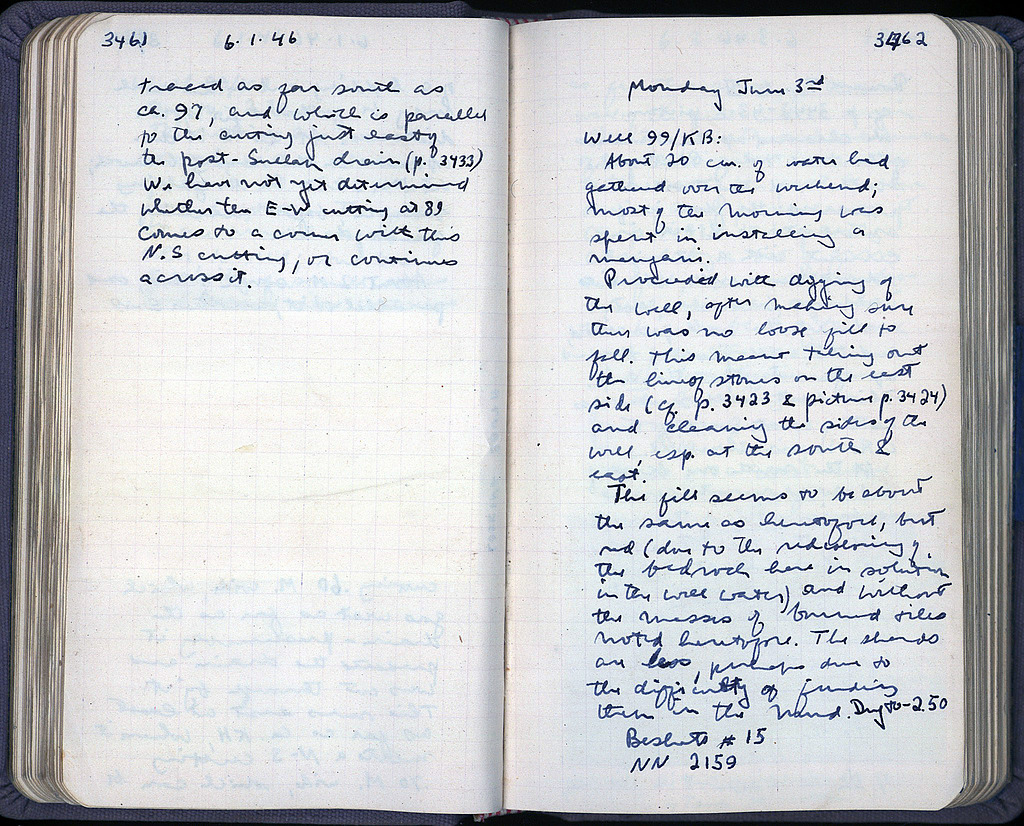 3461
6.1.46
traced as far south as
ca. 97, and which is parallel
to the cutting just east of
the post-Sullan drain (p. 3433)
We have not yet determined
whether the E-W cutting at 89
comes to a corner with this
N.S cutting, or continues
across it.
3462
Monday June 3rd
Well 99/KB:
About 20 cm. of water had
gathered over the weekend;
most of the morning was
spent in installing a
mangani.
Proceeded with digging of
the well, after making sure
there was no loose fill to
fall. This meant taking out
the line of stones on the east
side (cf. p. 3423 & picture p. 3424)
and cleaning the sides of the
well, esp. at the south &
east.
The fill seems to be about
the same as heretofore, but
red (due to the
the bedrock here in solution
in the well water) and without
the masses of burned tiles
noted heretofore. The sherds
are less, perhaps due to
the difficulty of finding
them in the mud. Dug to -2.50
Baskets # 15
NN 2159